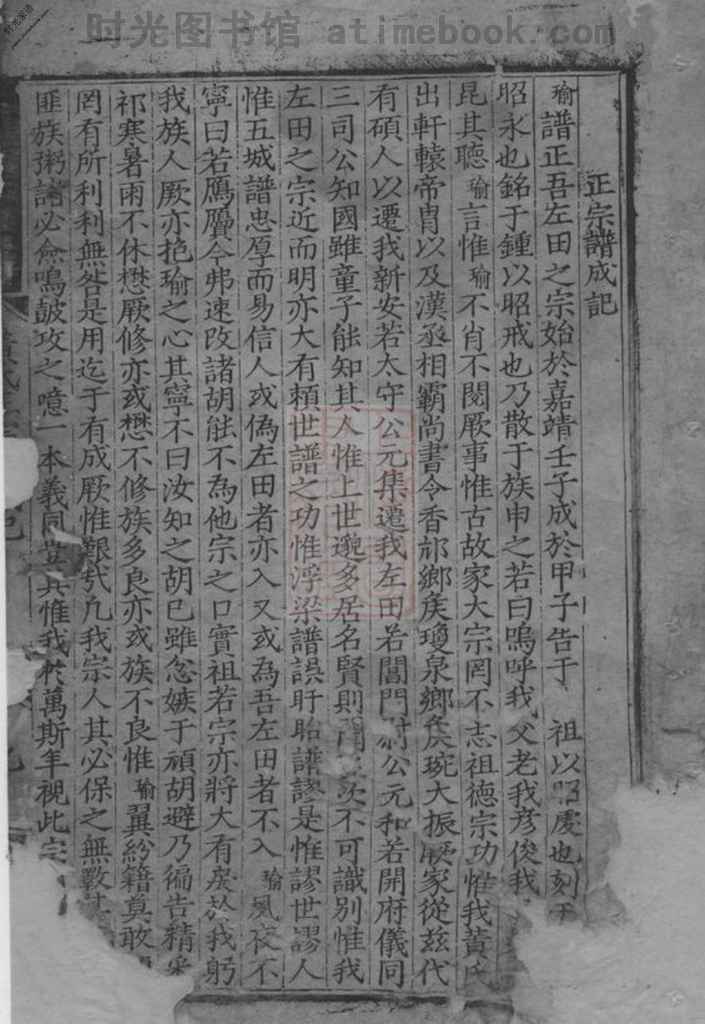 时光图书馆 atimebook.com
正宗譜成記
瑜譜正吾左田之宗始於嘉靖壬子成於甲子告于 祖以昭慶也刻于
昭永也銘于鍾以昭戒也乃散于族申之若曰嗚呼我父老我彥俊我
昆其聽瑜言惟瑜不肖不閱厥事惟古故家大宗罔不志祖德宗功惟我黃氏
出軒轅帝胄以及漢丞相霸尚書令香祁鄉矦瓊泉鄉矦琬大振厥家從兹代
有碩人以遷我新安若太守公元集遷我左田若閶門尉公元和若開府儀同
三司公知國雖童子能知其人惟上世邈多居名賢則 不可識别惟我
左田之宗近而明亦大有頼世譜之功惟浮梁譜誤盱眙譜謬是惟謬世謬人
惟五城譜忠厚而易信人或偽左田者亦入又或為吾左田者不入瑜夙夜不
寧曰若鴈贋今弗速改諸胡能不為他宗之口實祖若宗亦將大有戾於我躬
我族人厥亦抱瑜之心其寧不曰汝知之胡巳雖忿嫉于頑胡避乃徧告精
祁寒暑雨不休懋厥修亦或懋不修族多良亦或族不良惟瑜翼紛籍莫敢
罔有所利利無咎是用迄于有成厥惟艱㢤凢我宗人其必保之無斁
匪族粥諸必僉鳴皷攻之噫一本義同 惟我於萬斯年視此宗